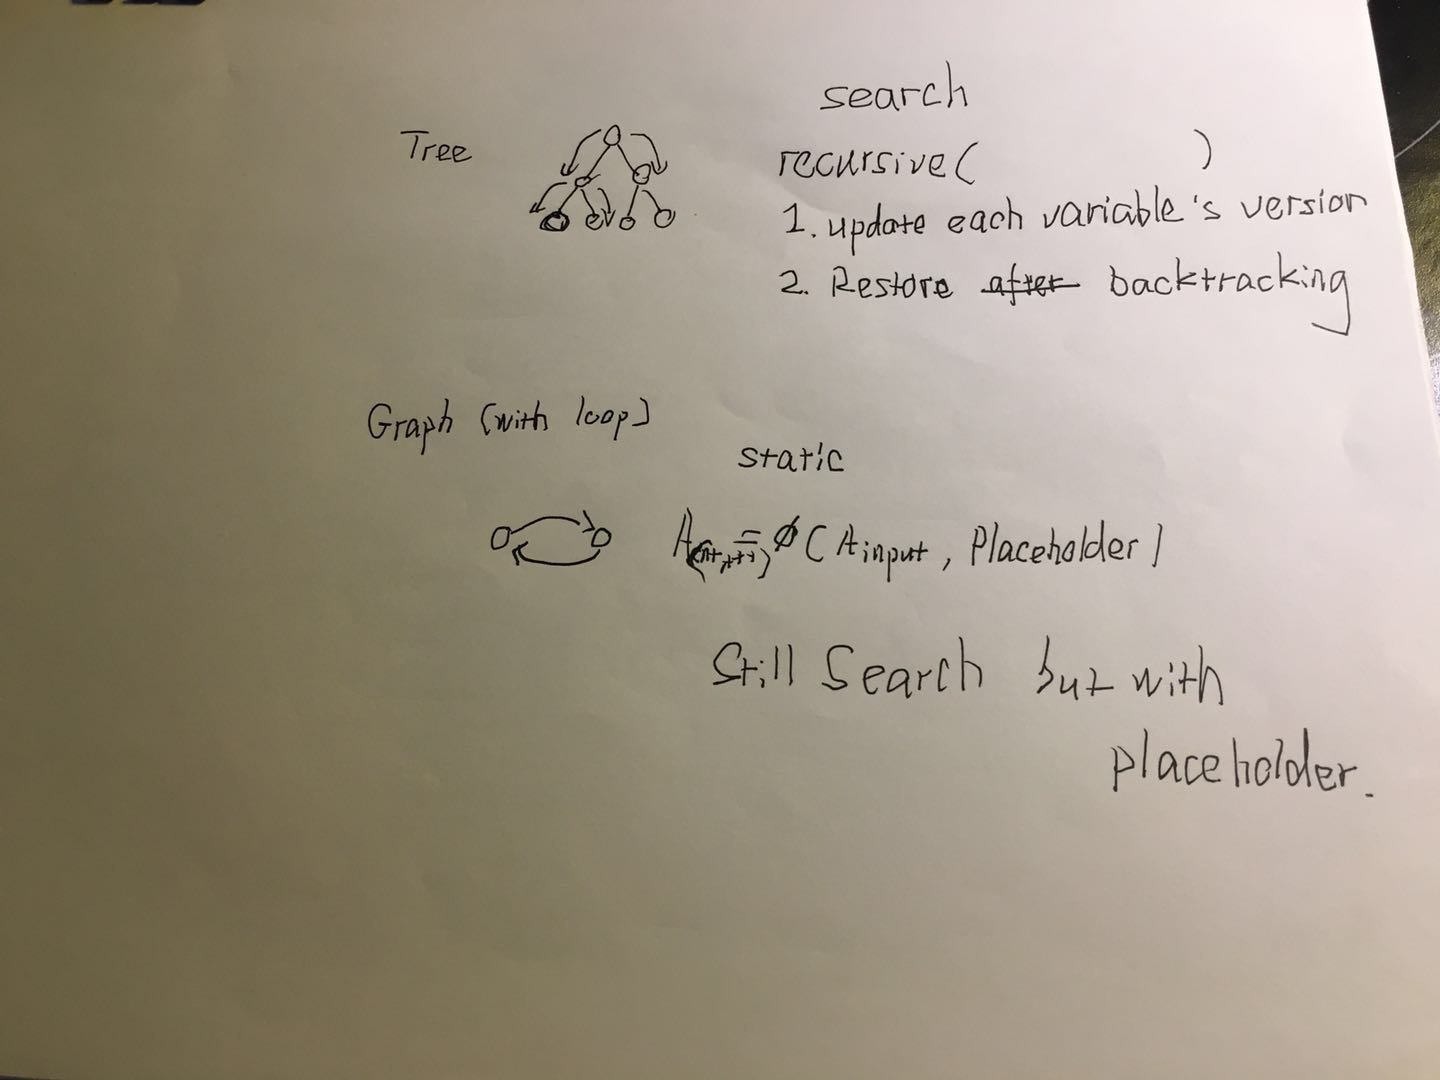 Tree
search
recursive( )
1. update each variable's version
2. Restore after backtracking
Graph (with loop)
static
A = φ( Ainput, Placeholder )
Still Search but with
placeholder.